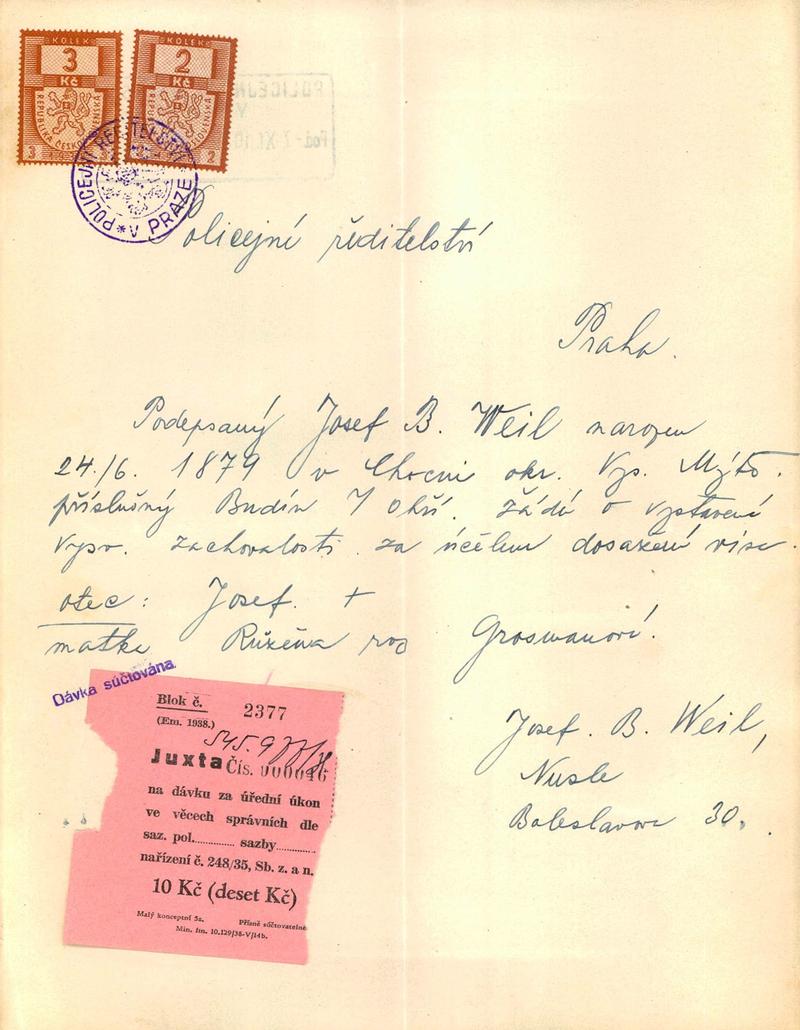 KOLEK
3
Kč
REPUBLIKA ČESKOSLOVENSKÁ
3
KOLEK
2
Kč
2
POLICEJNÍ ŘEDITELSTVÍ
* V PRAZE *
Policejní ředitelství
Praha.
Podepsaný Josef B. Weil narozen
24./6. 1879 v Chocni okr. Vys. Mýto.
příslušný Budín / Ohří. žádá o vystavení
vysv. zachovalosti za účelem dosažení visa.
otec: Josef. +
matka Růžena roz Grosmanová.
Dávka súčtována.
Josef. B. Weil,
Nusle
Boleslavova 30.
Blok č. 2377
(Em. 1938.)
Juxta Čís. 000046
na dávku za úřední úkon
ve věcech správních dle
saz. pol............. sazby............
nařízení č. 248/35, Sb. z. a n.
10 Kč (deset Kč)
Malý konceptní 5a. Přísně súčtovatelné
Min. fin. 10.129/38-V/14b.